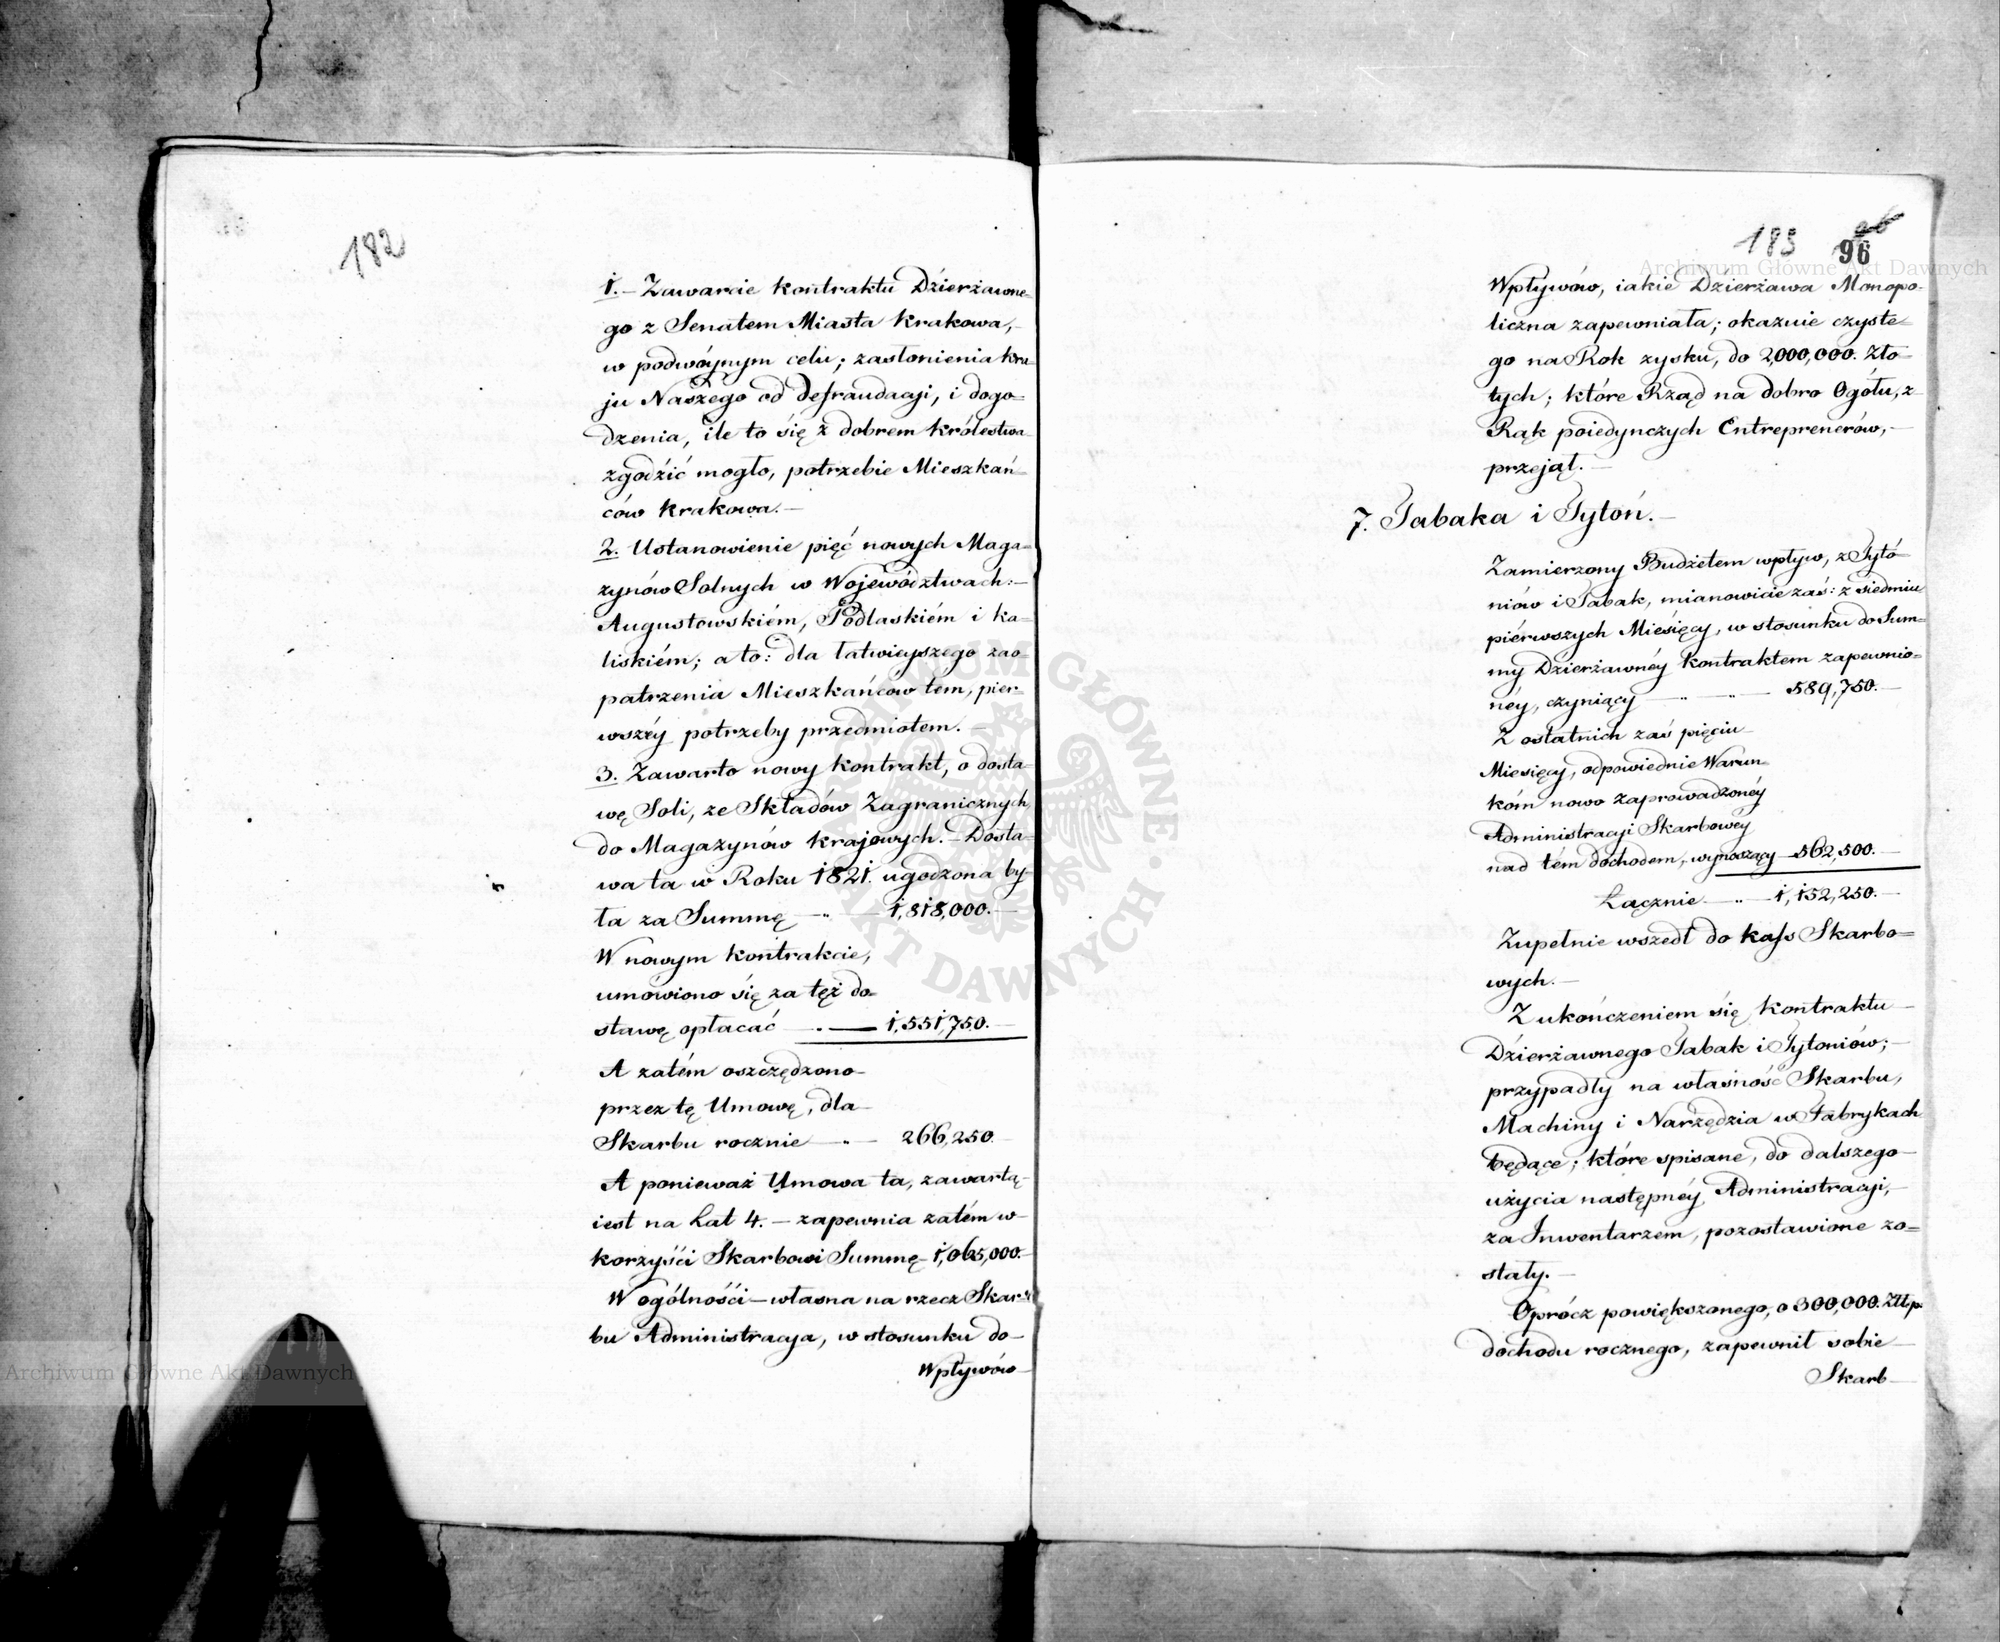 182
1. – Zawarcie kontraktu Dzierżawne-
go z Senatem Miasta Krakowa, –
w podwóynym celu; zasłonienia kra-
ju Naszego od defraudacji, i dogo-
dzenia, ile to się z dobrem Królestwa
zgodzić mogło, potrzebie Mieszkań-
ców Krakowa. –
2. Ustanowienie pięć nowych Maga-
zynów Solnych w Województwach: –
Augustowskiém, Podlaskiém i Ka-
liskiém; a to: dla łatwieyszego zao-
patrzenia Mieszkańcow tem, pier-
wszéy potrzeby przedmiotem. –
3. Zawarto nowy kontrakt, o dosta-
wę Soli, ze Składów Zagranicznych
do Magazynów krajowych. – Dosta-
wa ta w Roku 1821. ugodzona by-
ła za Summę – „ – 1,818,000. –
W nowym kontrakcie,
umówiono się za też do-
stawę opłacać – „ – 1,551,750. –
A zatém oszczędzono
przez tę Umowę, dla
Skarbu rocznie – „ – 266,250.
A ponieważ Umowa ta, zawartą
iest na Lat 4. – zapewnia zatém w
korzyści Skarbowi Summę 1,065,000. –
W ogólności – własna na rzecz Skar-
bu Administracya, w stosunku do
Wpływów
183
96
Wpływów, iakie Dzierżawa Monopo-
liczna zapewniała; okazuie czyste-
go na Rok zysku, do 2,000,000. Zło-
tych; które Rząd na dobro Ogółu, z
Rąk poiedynczych Entreprenerów, –
przejął. –
7. Tabaka i Tytoń. –
Zamierzony Budżetem wpływ, z Tyto-
niów i Tabak, mianowicie zaś: z siedmiu
piérwszych Miesięcy, w stosunku do Sum-
my Dzierżawnéy kontraktem zapewnio-
néy, czyniący – „ – „ – 589,750. –
Z ostatnich zaś pięciu
Miesięcy, odpowiednie Warun-
kóm nowo zaprowadzonéy
Administracyi Skarbowey
nad tém dochodem, wynoszący – 562,500. –
Łącznie – „ – 1,152,250. –
Zupełnie wszedł do kass Skarbo-
wych. –
Z ukończeniem się kontraktu
Dzierżawnego Tabak i Tytoniów; –
przypadły na własność Skarbu,
Machiny i Narzędzia w Fabrykach
będące; które spisane, do dalszego
użycia następnéy Administracyi, –
za Inwentarzem, pozostawione zo-
stały. –
Oprócz powiększonego, o 300,000. Złłp.
dochodu rocznego, zapewnił sobie
Skarb
Archiwum Główne Akt Dawnych
Archiwum Główne Akt Dawnych
ARCHIWUM GŁÓWNE AKT DAWNYCH